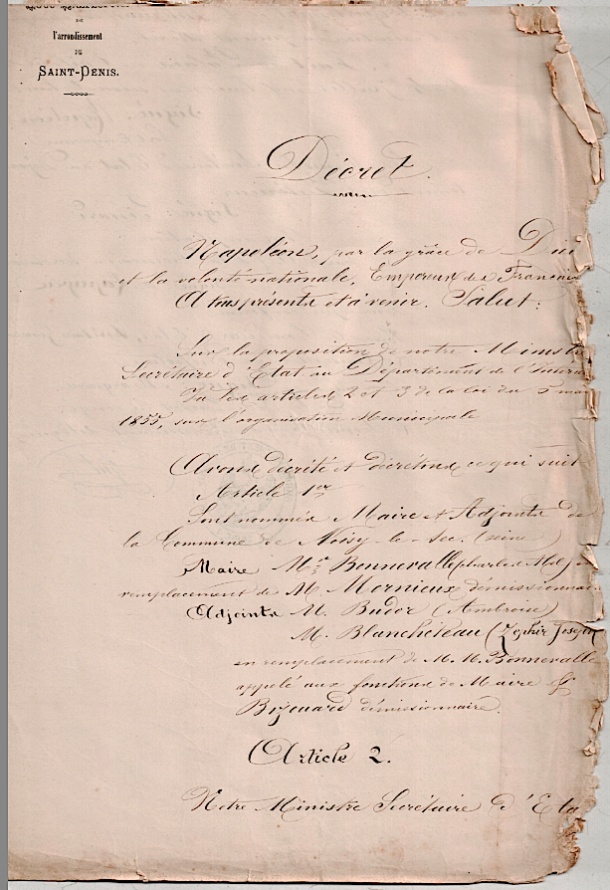 DE
l'arrondissement
DE
SAINT-DENIS.
Décret.
Napoléon, par la grâce de Dieu
et la volonté nationale, Empereur des Français
A tous présents et à venir. Salut:
Sur la proposition de notre Ministre
Secrétaire d'Etat au Département de l'Interieur
Vu les articles 2 et 3 de la loi du 5 mai
1855, sur l'organisation Municipale
Avons décrété et décrétons ce qui suit
Article 1er
Sont nommés Maire et Adjoints de
la Commune de Noisy-le-Sec. (Seine)
Maire Mr Bonnevalle (Charles
remplacement de M Mornieux démissionnaire
Adjoints M. Budor (Ambroise)
M. Blancheteau (Zéphir Joseph
en remplacement de M. M. Bonnevalle
appelé aux fonctions de Maire &
démissionnaire.
Article 2.
Notre Ministre Secrétaire d'Eta